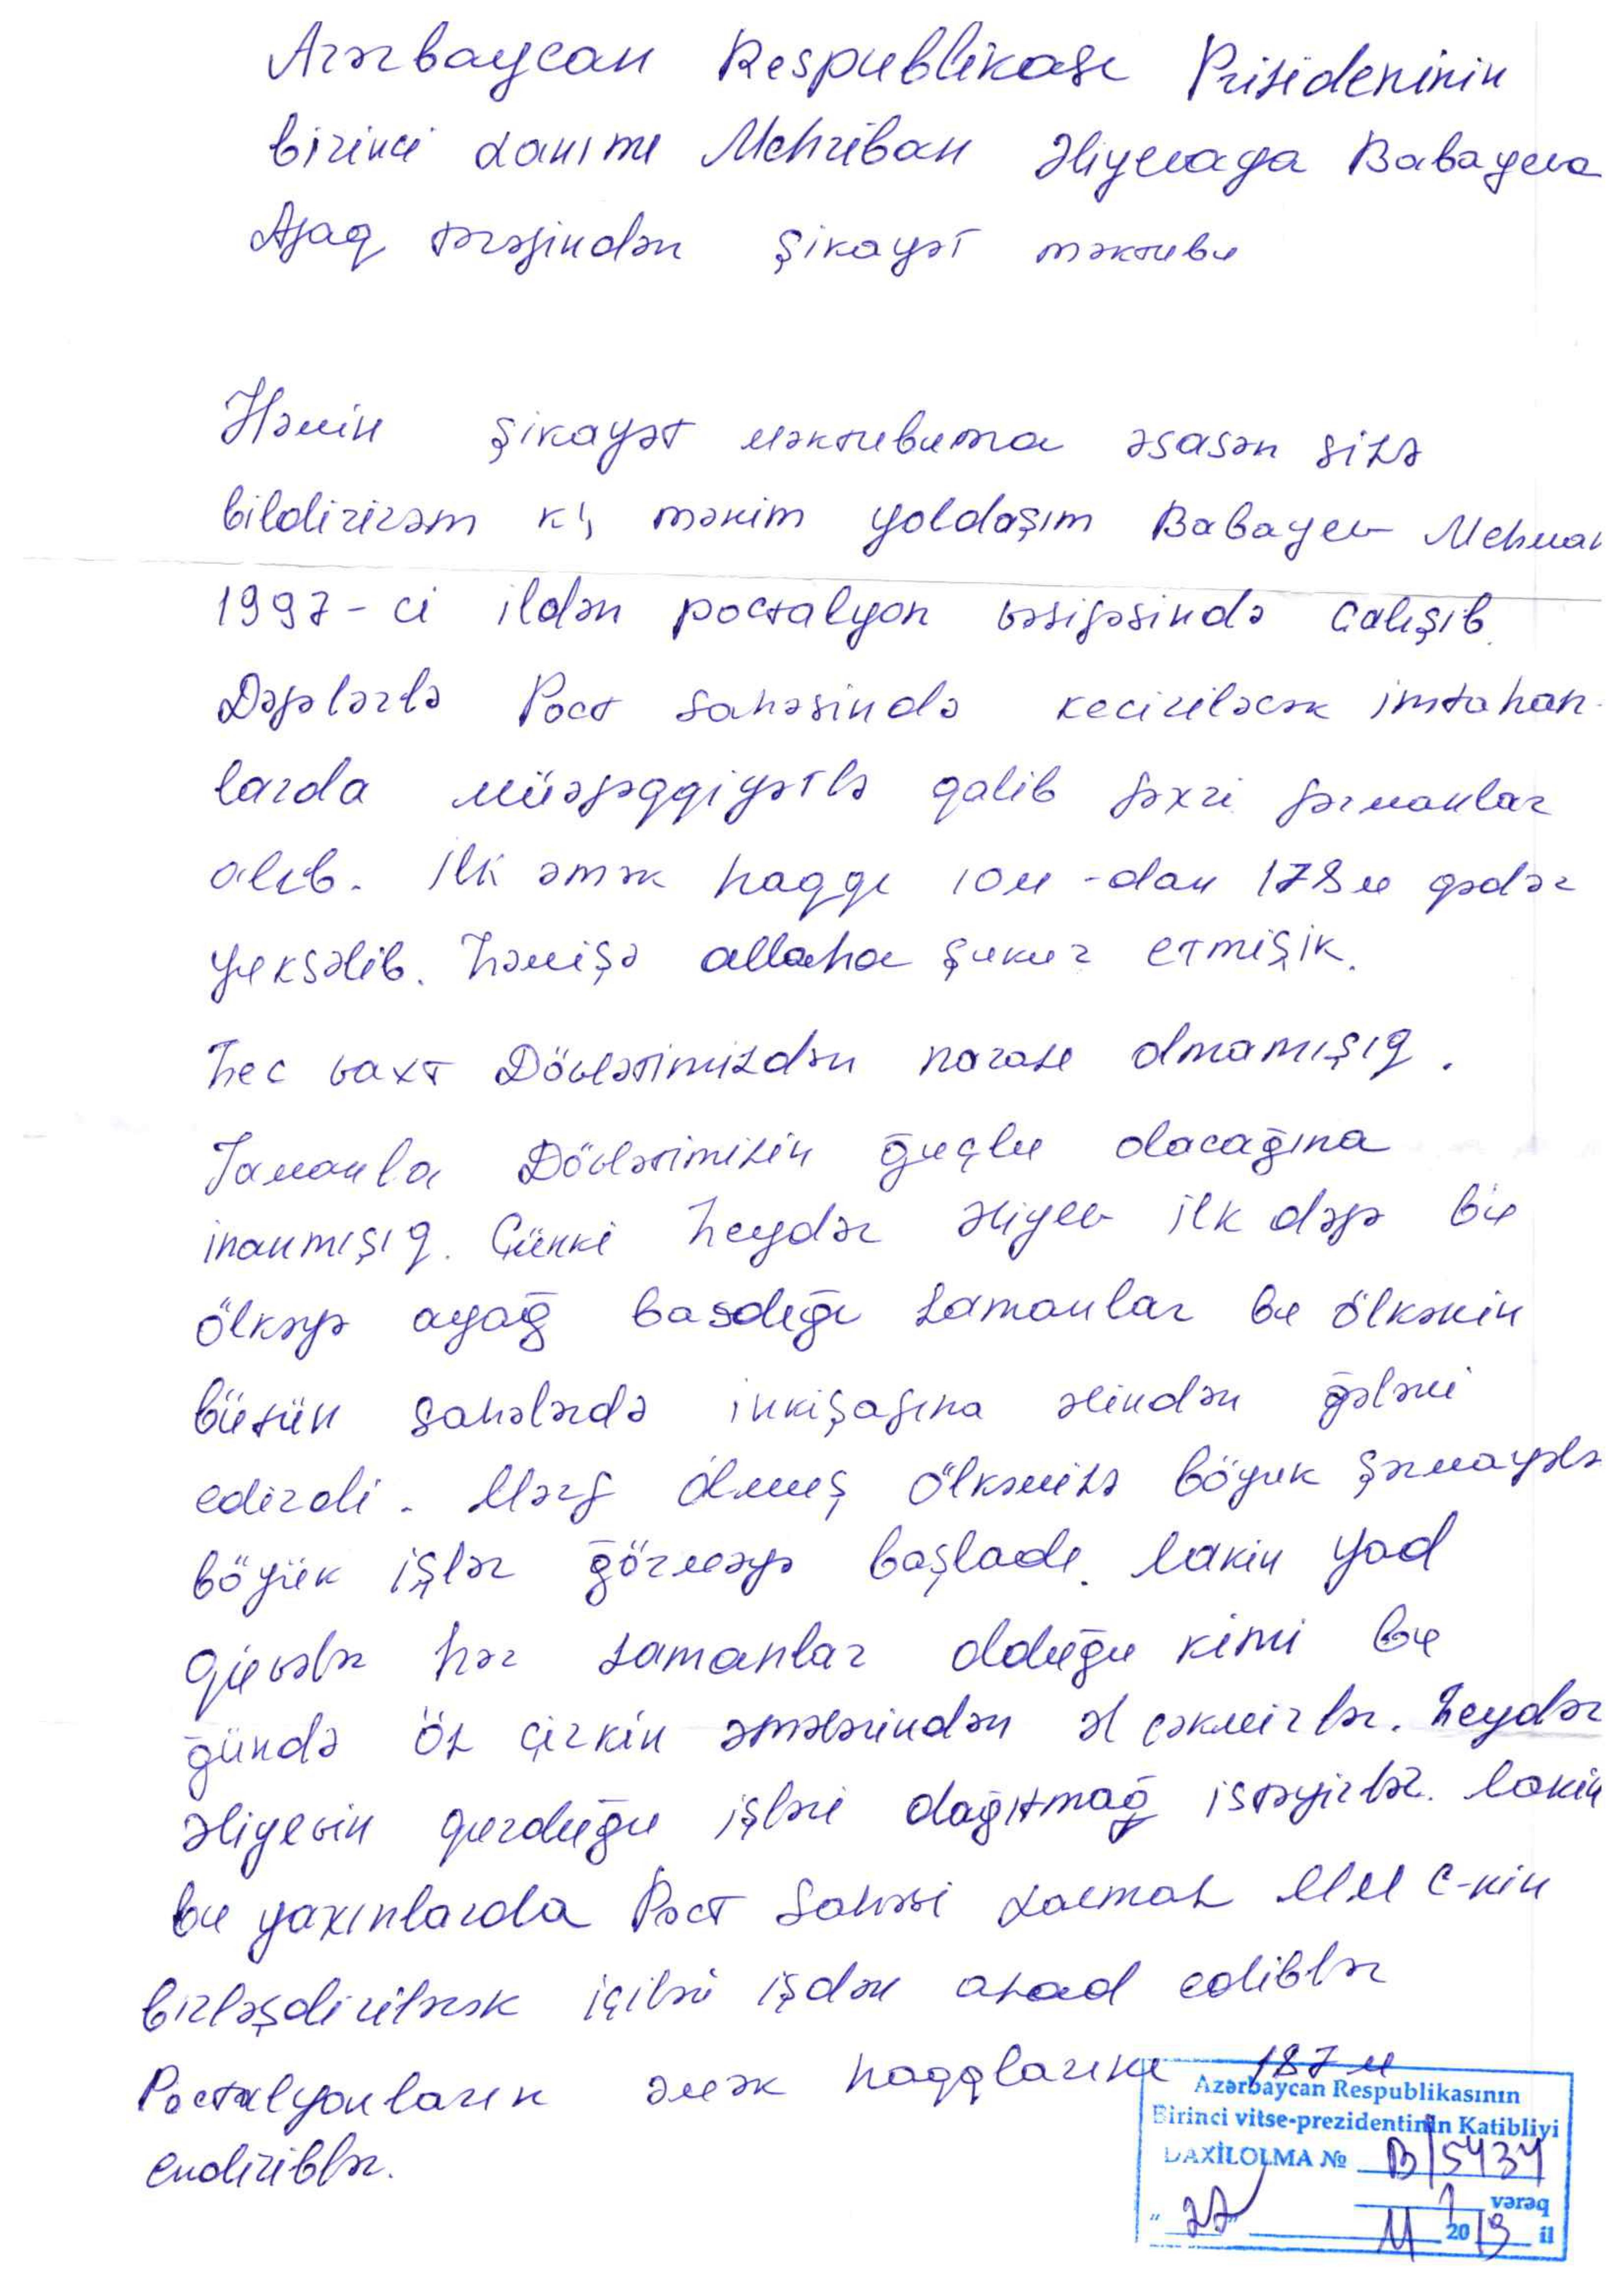 Azərbaycan Respublikası Prizideninin
birinci xanımı Mehriban Əliyevaya Babayeva
Afaq tərəfindən şikayət məktubu
Həmin şikayət məktubuma əsasən sizə
bildirirəm ki, mənim yoldaşım Babayev Mehman
1997-ci ildən poctalyon vəsifəsində calışıb.
Dəfələrlə Poct sahəsində keciriləcək imtahan-
larda müəfəqqiyətlə qalib fəxri fərmanlar
alıb. İlk əmək haqqı 10m-dan 178m qədər
yuksəlib. həmişə allaha şukur etmişik.
hec vaxt Dövlətimizdən narazı olmamışıq.
Zamanla Dövlətimizin ğuçlu olacağına
inanmışıq. Çünki heydər Əliyev ilk dəfə bu
ölkəyə ayağ basdığı zamanlar bu ölkənin
bütün sahələrdə inkişafına əlindən ğələni
edirdi. Mərf olmuş ölkəmizə böyuk şərmayələ
böyük işlər ğörməyə başladı. lakin yad
qüvələr hər zamanlar olduğu kimi bu
ğündə öz çirkin əmələrindən əl çəkmirlər. heydər
Əliyevin qurduğu işləri dağıtmağ istəyirlər. lakin
bu yaxınlarda Poct Sahəsi xaçmaz MM C-nin
birləşdirilərək içiləri işdən azad ediblər
Poctalyonların əmək haqqlarını 187m
endiriblər.
Azərbaycan Respublikasının
Birinci vitse-prezidentinin Katibliyi
DAXİLOLMA № B/5434
1 vərəq
"27" 11 2019 il